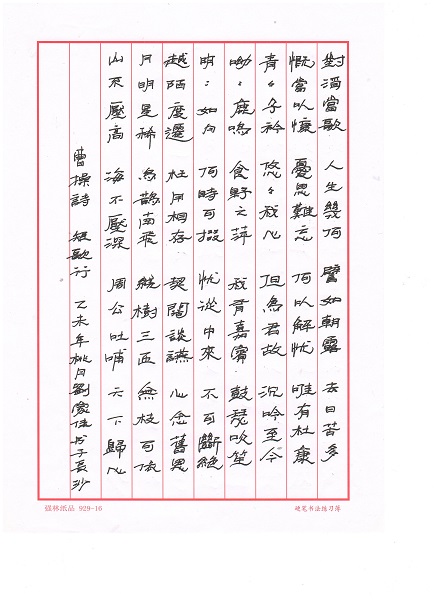 對酒當歌 人生幾何 譬如朝露 去日苦多
慨當以慷 憂思難忘 何以解忧 唯有杜康
青々子衿 悠々我心 但為君故 沉吟至今
呦々鹿鳴 食野之苹 我有嘉賓 鼓瑟吹笙
明々如月 何時可掇 忧從中來 不可斷絕
越陌度遷 枉用相存 契闊談讌 心念舊恩
月明星稀 烏鵲南飛 繞樹三匝 無枝可依
山不壓高 海不壓深 周公吐哺 天下歸心
曹操詩 短歌行 乙未年桃月劉家佳书于長沙
强林纸品 929-16
硬笔书法练习簿